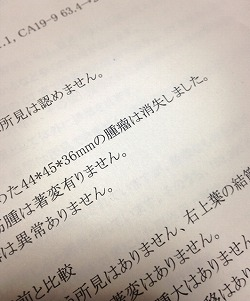 .1, CA19-9 63.4→
所見は認めません。
った44*45*36mmの腫瘤は消失しました。
腫は著変有りません。
は異常ありません。
前と比較
所見はありません、右上葉の結節
腫大はありません
はあり